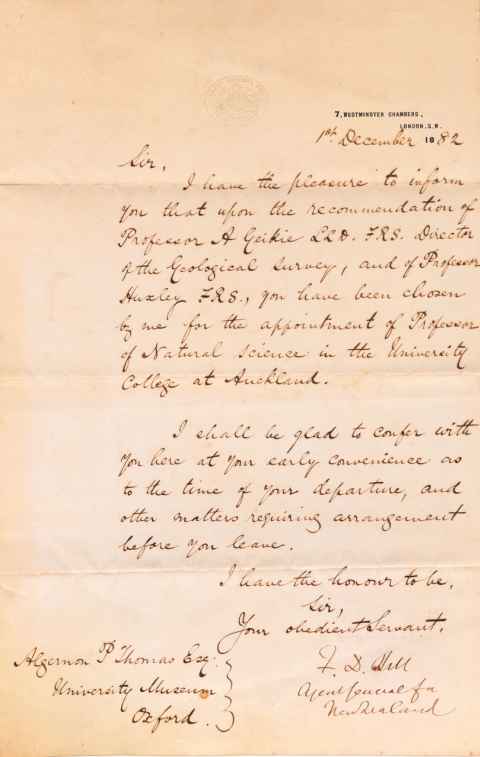 7, WESTMINSTER CHAMBERS,
LONDON, S.W.
1st December 1882
Sir,
I have the pleasure to inform
you that upon the recommendation of
Professor A Geikie LLD. F.R.S. Director
of the Geological Survey, and of Professor
Huxley F.R.S., you have been chosen
by me for the appointment of Professor
of Natural Science in the University
College at Auckland.
I shall be glad to confer with
you here at your early convenience as
to the time of your departure, and
other matters requiring arrangement
before you leave.
I have the honour to be,
Sir,
Your obedient Servant,
F. D. Bell
Agent General for
New Zealand
Algernon P Thomas Esq.
University Museum
Oxford.